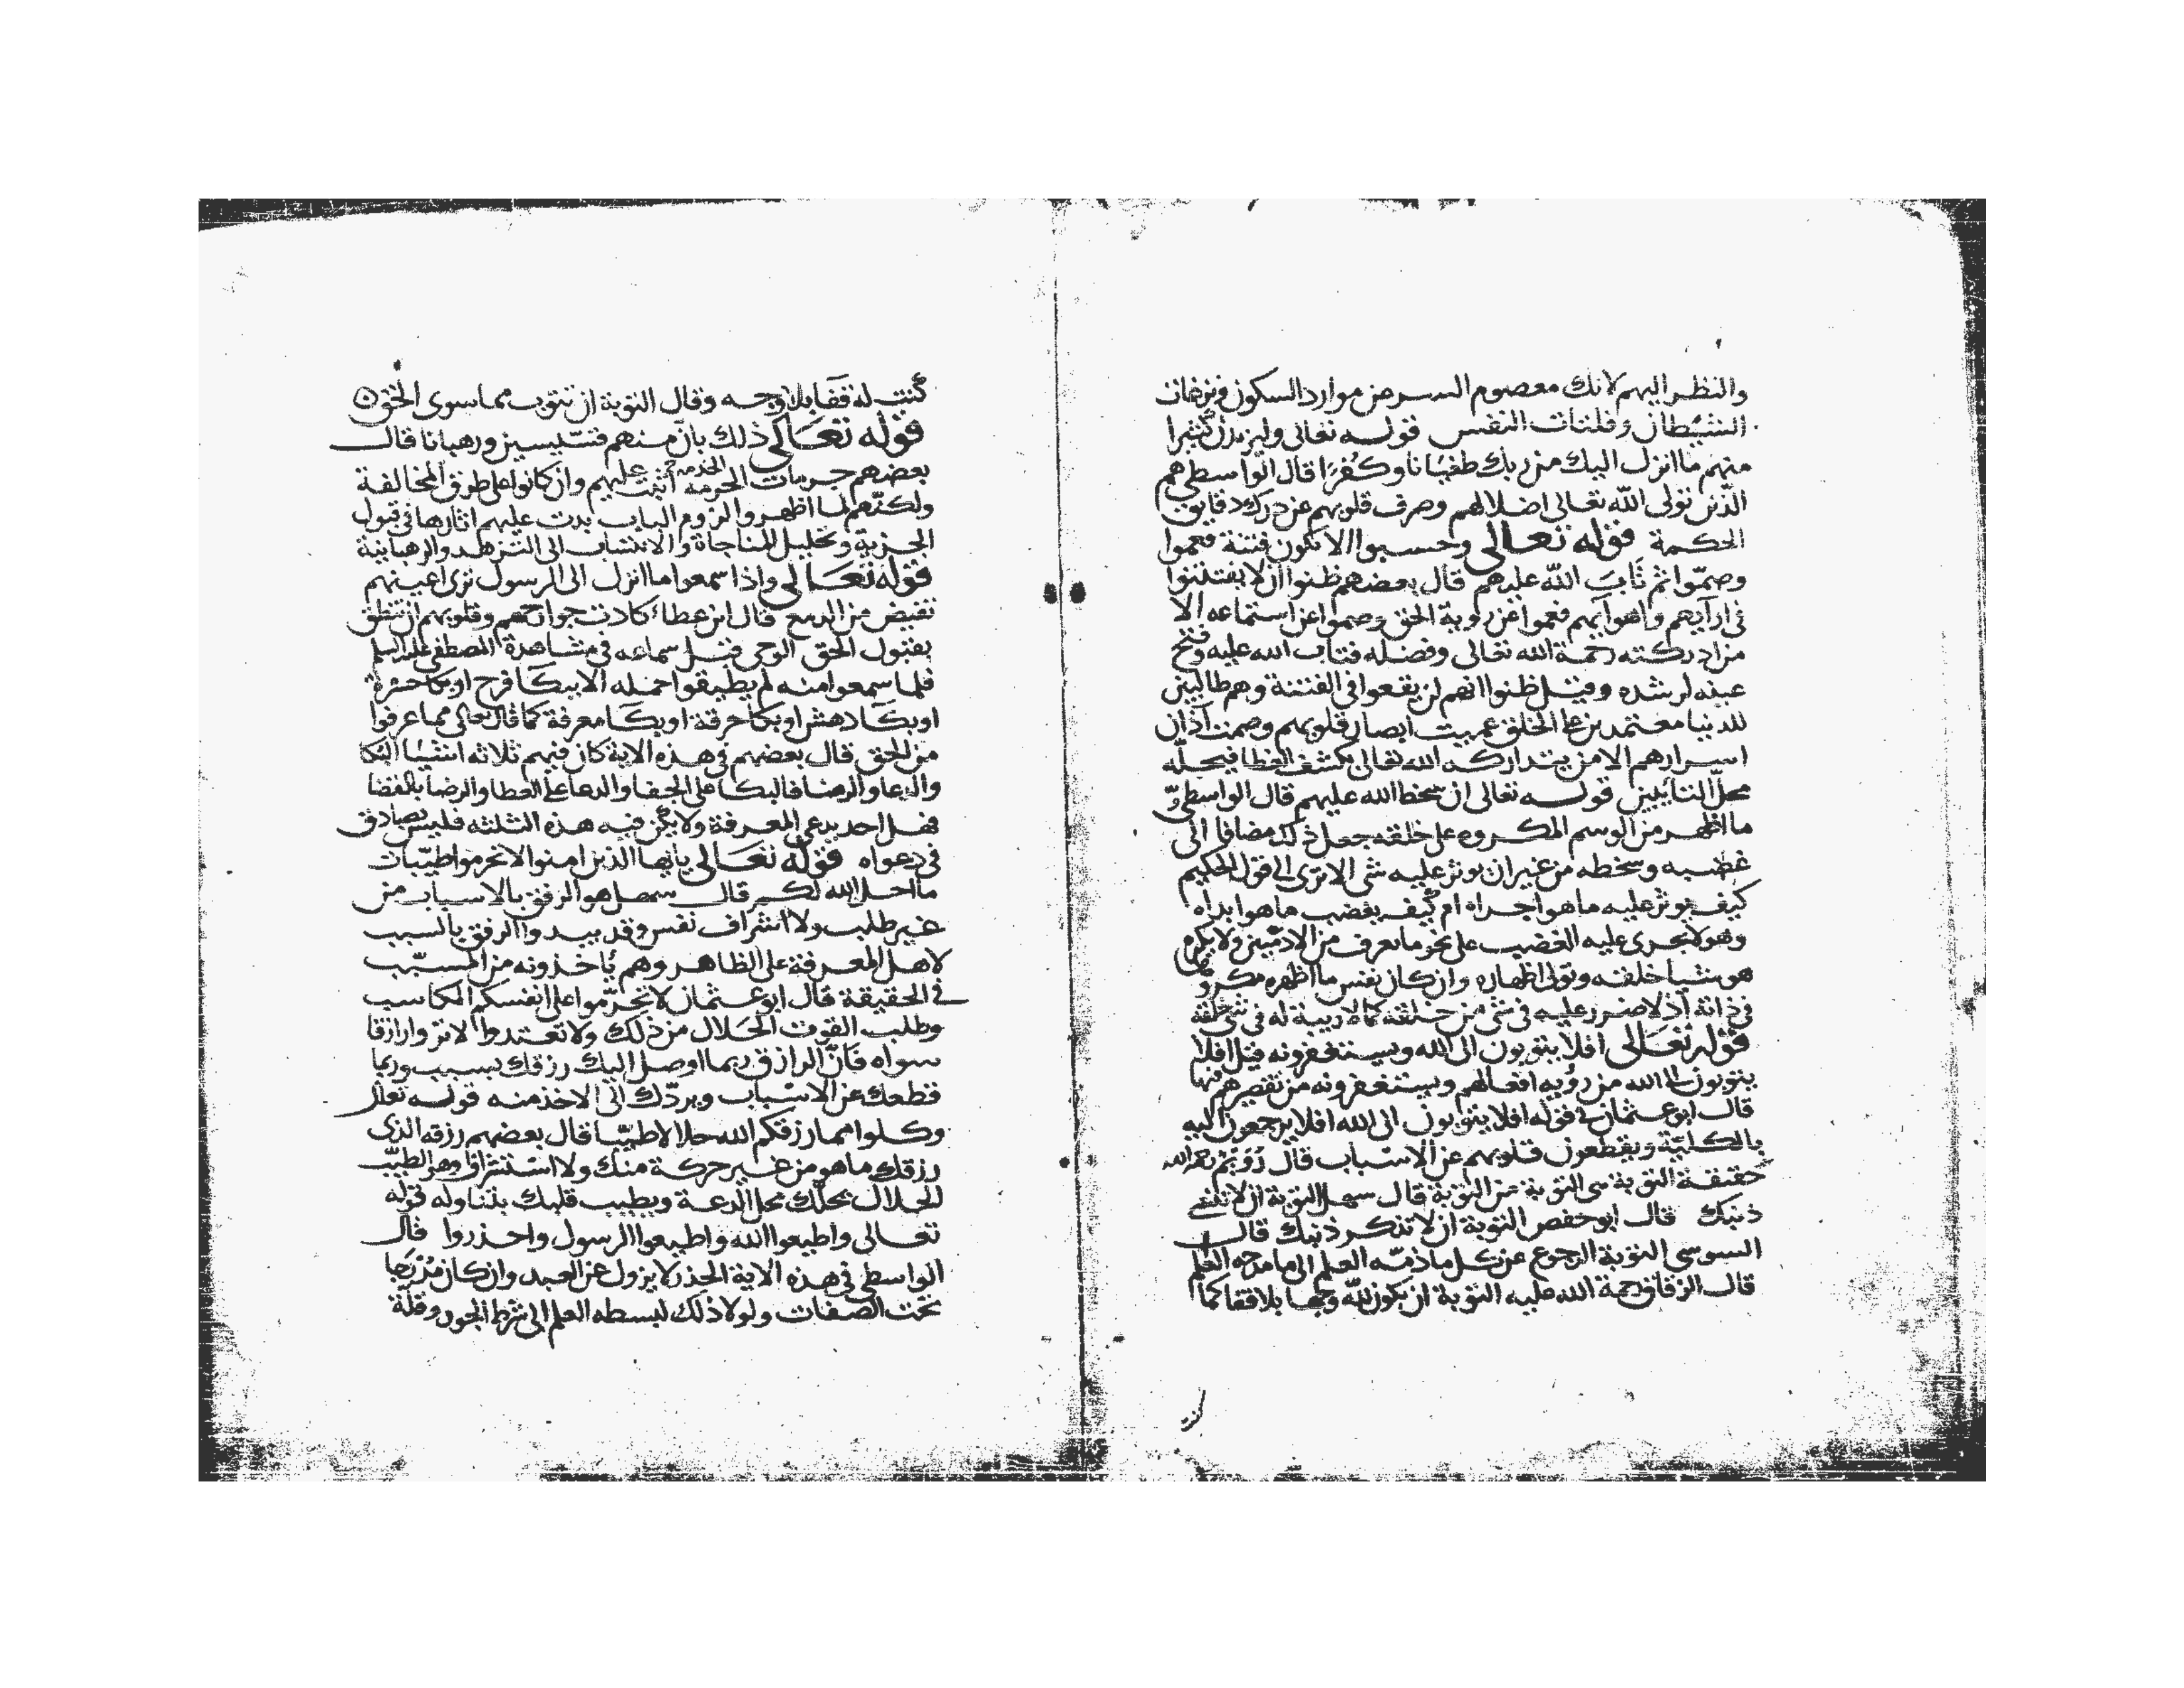 والنظر اليهم لانك معصوم السر من موارد السكون ونزغات
الشيطان وفلتات النفس قوله تعالى وليزيدن كثيرا
منهم ما انزل اليك من ربك طغيانا وكفرا قال الواسطي هم
الذين تولى الله تعالى اضلالهم وصرف قلوبهم عن درك دقايق
الحكمة قوله تعالى وحسبوا الا تكون فتنة فعموا
وصموا ثم تاب الله عليهم قال بعضهم ظنوا ان لا يفتتنوا
في ارآيهم واهوايهم فعموا عن روية الحق وصموا عن استماعه الا
من ادركته رحمة الله تعالى وفضله فتاب الله عليه وفتح
عينه لرشده وقيل ظنوا انهم لن يقعوا في الفتنة وهم طالبين
للدنيا معتمدين على الخلق عميت ابصار قلوبهم وصمت آذان
اسرارهم الا من يتداركه الله تعالى بكشف الغطا فيحله
محل التائبين قوله تعالى ان سخط الله عليهم قال الواسطي
ما اظهر من الوسم المكروه على خلقه جعل ذلك مضافا الى
غضبه وسخطه من غير ان يوثر عليه شي الا ترى الى قول الحكيم
كيف يوثر عليه ما هو اجراه ام كيف يغضب ما هو ابداه
وهو لا يجرى عليه الغضب على نحو ما يعرف من الادميين ولا يكره
هو شيا خلقه وتولى اظهاره وان كان نفس ما اظهره مكروها
في ذاته اذ لا ضرر عليه في شي من خلقه كما لا زينة له في شي خلقه
قوله تعالى افلا يتوبون الى الله ويستغفرونه قيل افلا
يتوبون الى الله من روية افعالهم ويستغفرونه من تقصيرهم فيها
قال ابو عثمان في قوله افلا يتوبون الى الله افلا يرجعون اليه
بالكلية ويقطعون قلوبهم عن الاسباب قال رويم رحمه الله
حقيقة التوبة هى التوبة من التوبة قال سهل التوبة ان لا تنسى
ذنبك قال ابو حفص التوبة ان لا تذكر ذنبك قال
السوسي التوبة الرجوع عن كل ما ذمه العلم الى ما مدحه العلم
قال الزقاق رحمة الله عليه التوبة ان تكون لله وجها بلا قفا كما
كنت له قفا بلا وجه وقال التوبة ان تتوب مما سوى الحق
قوله تعالى ذلك بان منهم قسيسين ورهبانا قال
بعضهم حرمات الحرمة الخدمة اثبت عليهم وان كانوا على طرق المخالفة
ولكنهم لما اظهروا لزوم الباب بدت عليهم اثارها في قبول
الجزية وتحليل المناجاة والانتساب الى التزهد والرهبانية
قوله تعالى واذا سمعوا ما انزل الى الرسول ترى اعينهم
تفيض من الدمع قال ابن عطاء كادت جوارحهم وقلوبهم ان تنطق
بقبول الحق الوحى قبل سماعه في مشاهدة المصطفى عليه السلم
فلما سمعوا منه لم يطيقوا حمله الا ببكا فرح او بكا حسرة
او بكا دهش او بكا حرقة او بكا معرفة كما قال تعالى مما عرفوا
من الحق قال بعضهم في هذه الاية كان فيهم ثلاثه اشيا البكا
والدعا والرضا فالبكا على الجفا والدعا على العطا والرضا بالقضا
فكل احد يدعي المعرفة ولا يكن فيه هذه الثلثه فليس بصادق
في دعواه قوله تعالى يايها الذين امنوا لا تحرموا طيبات
ما احل الله لكم قال سهل هو الرفق بالاسباب من
غير طلب ولا اشراف نفس وقد يبدوا الرفق بالسبب
لاهل المعرفة على الظاهر وهم ياخذونه من المسبب
في الحقيقة قال ابو عثمان لا تحرموا على انفسكم المكاسب
وطلب القوت الحلال من ذلك ولا تعتدوا لا تروا رازقا
سواه فان الرازق ربما اوصل اليك رزقك بسبب وربما
قطعك عن الاسباب ويردك الى الاخذ منه قوله تعالى
وكلوا مما رزقكم الله حلالا طيبا قال بعضهم رزقه الذى
رزقك ما هو من غير حركة منك ولا استشراف وهو الطيب
الحلال يحلك محل الدعة ويطيب قلبك بتناوله قوله
تعالى واطيعوا الله واطيعوا الرسول واحذروا قال
الواسطي في هذه الاية الحذر لا يزول عن العبد وان كان مدرجا
تحت الصفات ولولا ذلك لبسطه العلم الى شرط الجود وقلة